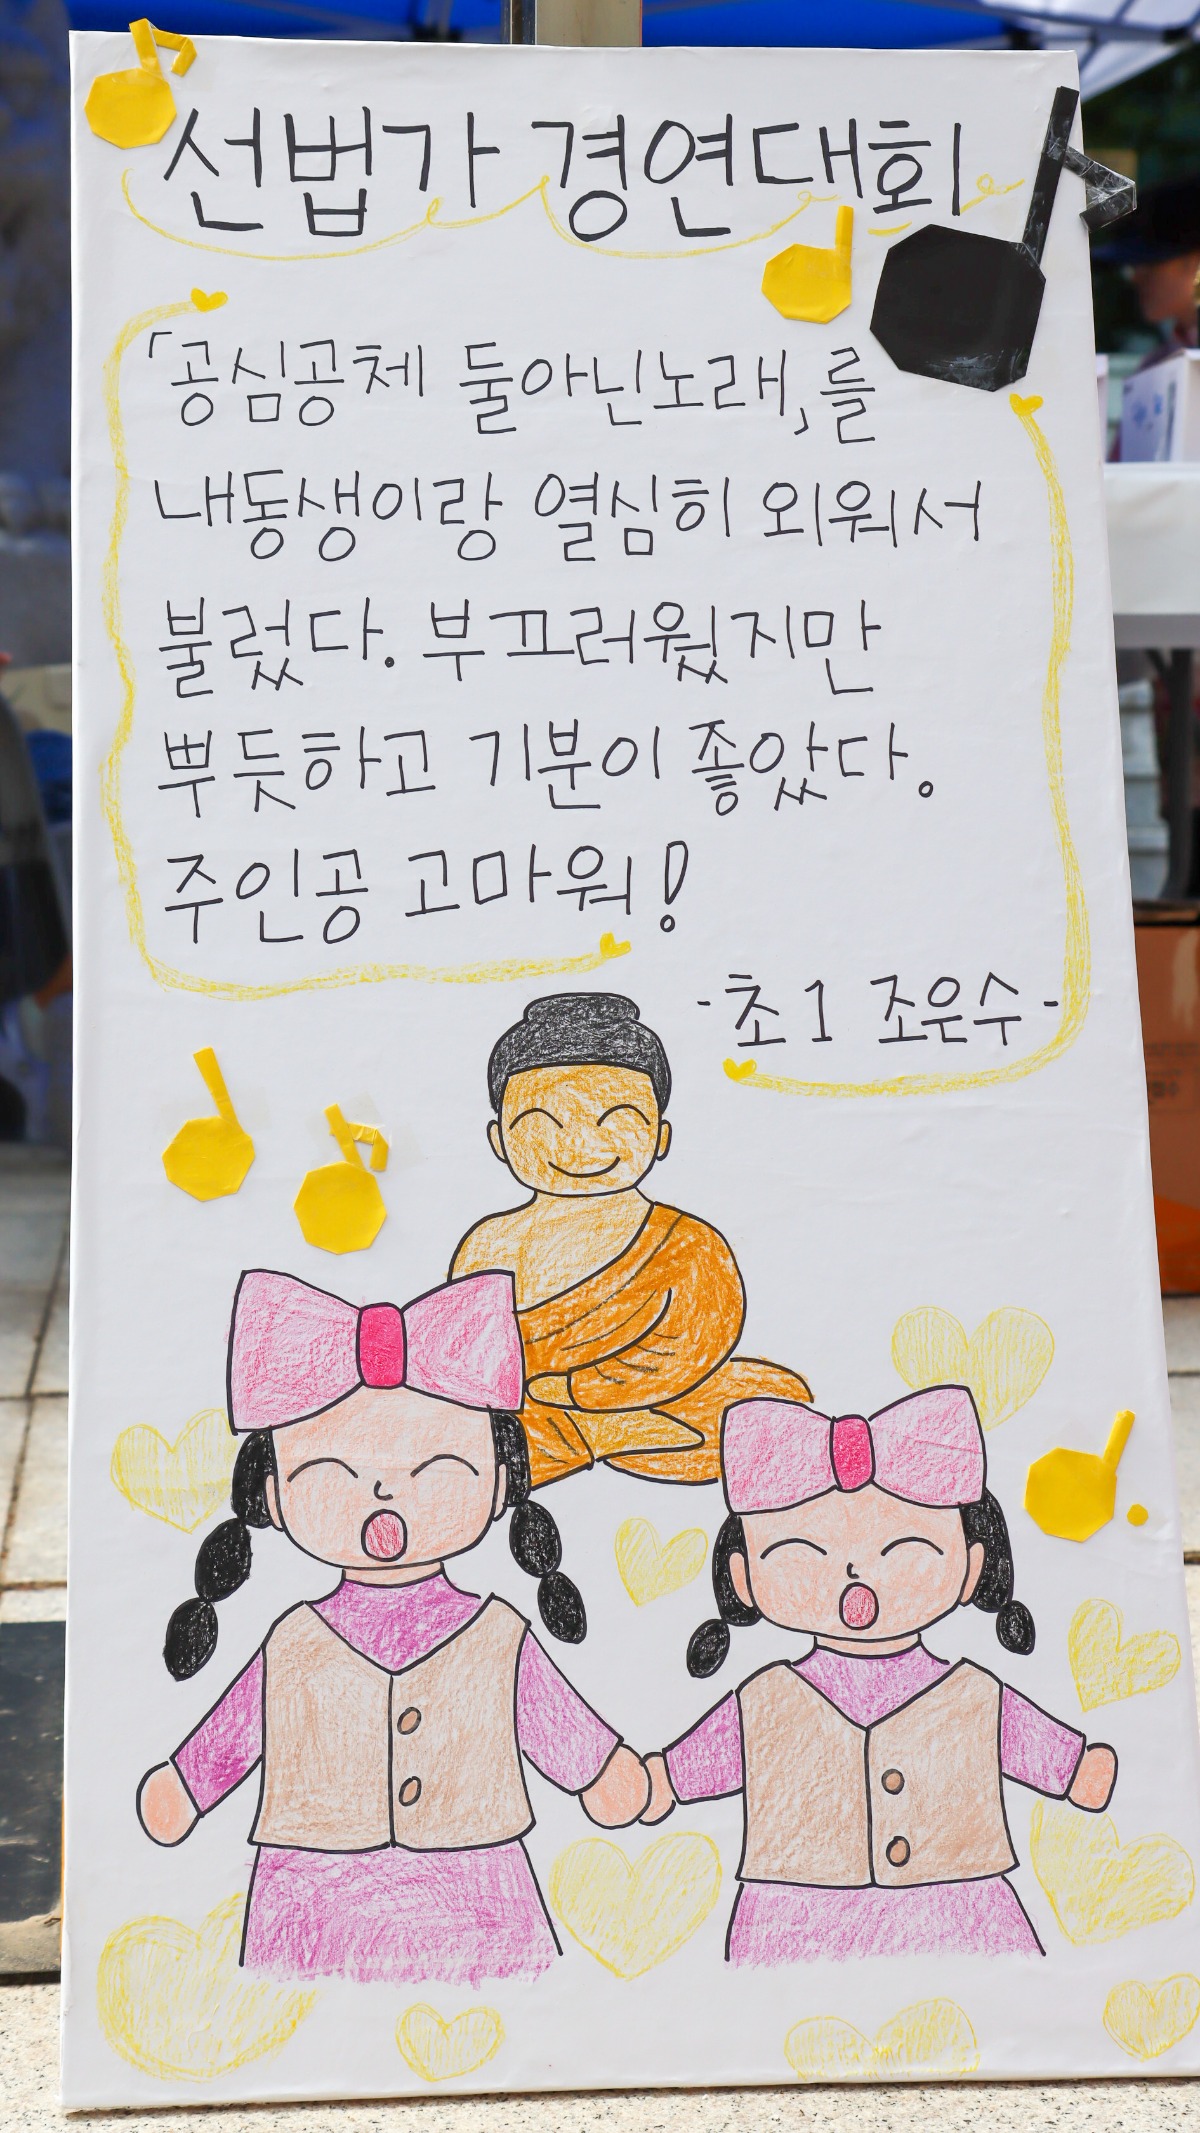 선법가 경연대회
「공심공체 둘아닌노래」를
내동생이랑 열심히 외워서
불렀다. 부끄러웠지만
뿌듯하고 기분이 좋았다.
주인공 고마워!
-초1 조은수-